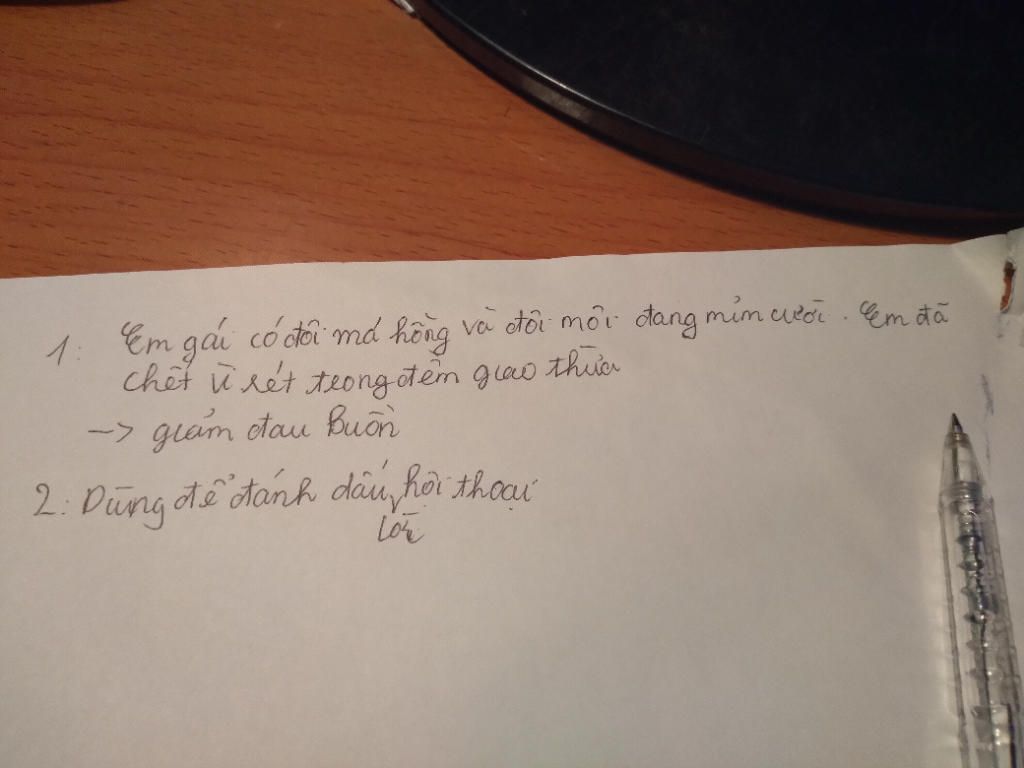 1: Em gái có đôi má hồng và đôi môi đang mỉm cười. Em đã
chết vì rét trong đêm giao thừa
-> giảm đau Buồn
2: Dùng để đánh dấu lời hội thoại